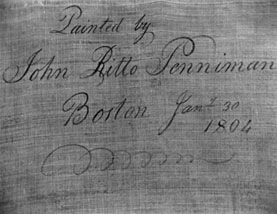 Painted by
John Ritto Penniman
Boston Jany 30
1804